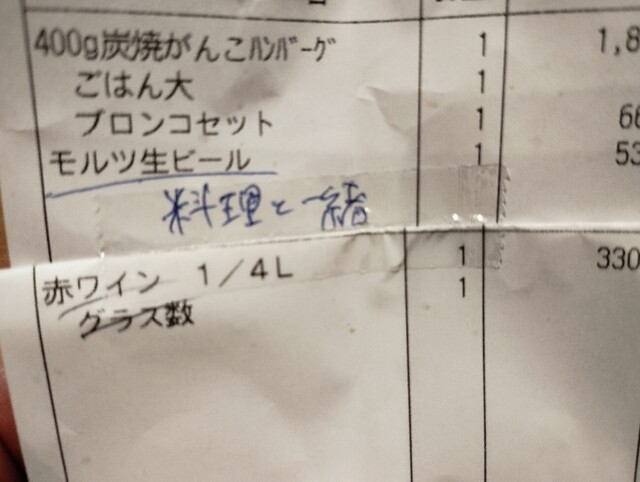 400g炭焼がんこﾊﾝﾊﾞｰｸﾞ 1 1,8
ごはん大 1
ブロンコセット 1 66
モルツ生ビール 1 53
料理と一緒
赤ワイン 1/4L 1 330
グラス数 1